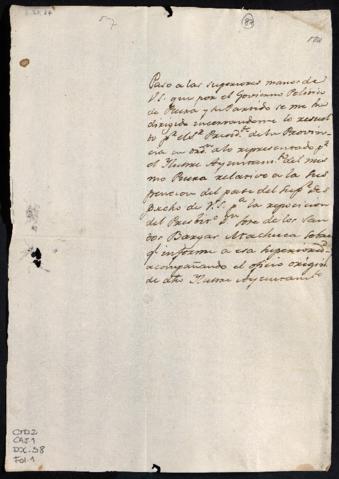 57
Paso a las superiores manos de
V.S. que por el Govierno Politico
de Piura y su Partido se me ha
dirigido incertandome lo resuel
to pr. el Sr. Presidte. de la Provin
cia en ordn. a lo representado pr.
el Ilustre Ayuntamto. del mis
mo Piura relativo a la sus
pencion del pase del Supr. des
pacho de V.S. pa. la reposicion
del Presbitro. Dn. Jose de los San
tos Bargas Machuca
qe. informe a esa Superiorid.
acompañando el oficio origin
de dho Ilustre Ayuntamto.
CTD2
CAJ.1
DOC.58
Fol.1